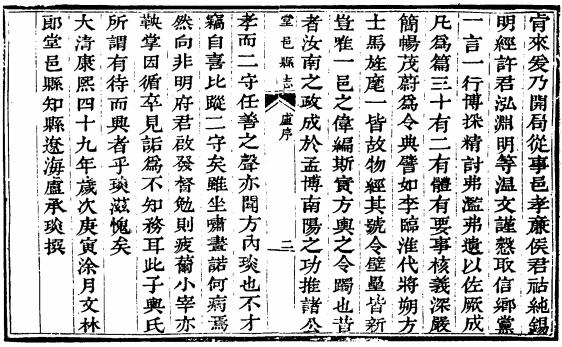 肻來爰乃開局從事邑孝廉侯君祜純錫
明經許君泓淵明等溫文謹愨取信鄉黨
一言一行博採精討弗濫弗遺以佐厥成
凡爲篇三十有二有體有要事核義深嚴
簡暢茂蔚爲令典譬如李臨淮代將朔方
士馬旌麾一皆故物經其號令壁壘皆新
豈唯一邑之偉編斯實方輿之令躅也昔
者汝南之政成於孟博南陽之功推諸公
堂邑縣志 盧序 二
孝而二守任善之聲亦聞方內琰也不才
竊自喜比蹤二守矣雖坐嘯畫諾何病焉
然向非明府君啟發督勉則疲薾小宰亦
鞅掌因循卒見詬爲不知務耳此子輿氏
所謂有待而興者乎琰滋愧矣
大清康熙四十九年歲次庚寅涂月文林
郎堂邑縣知縣遼海盧承琰撰